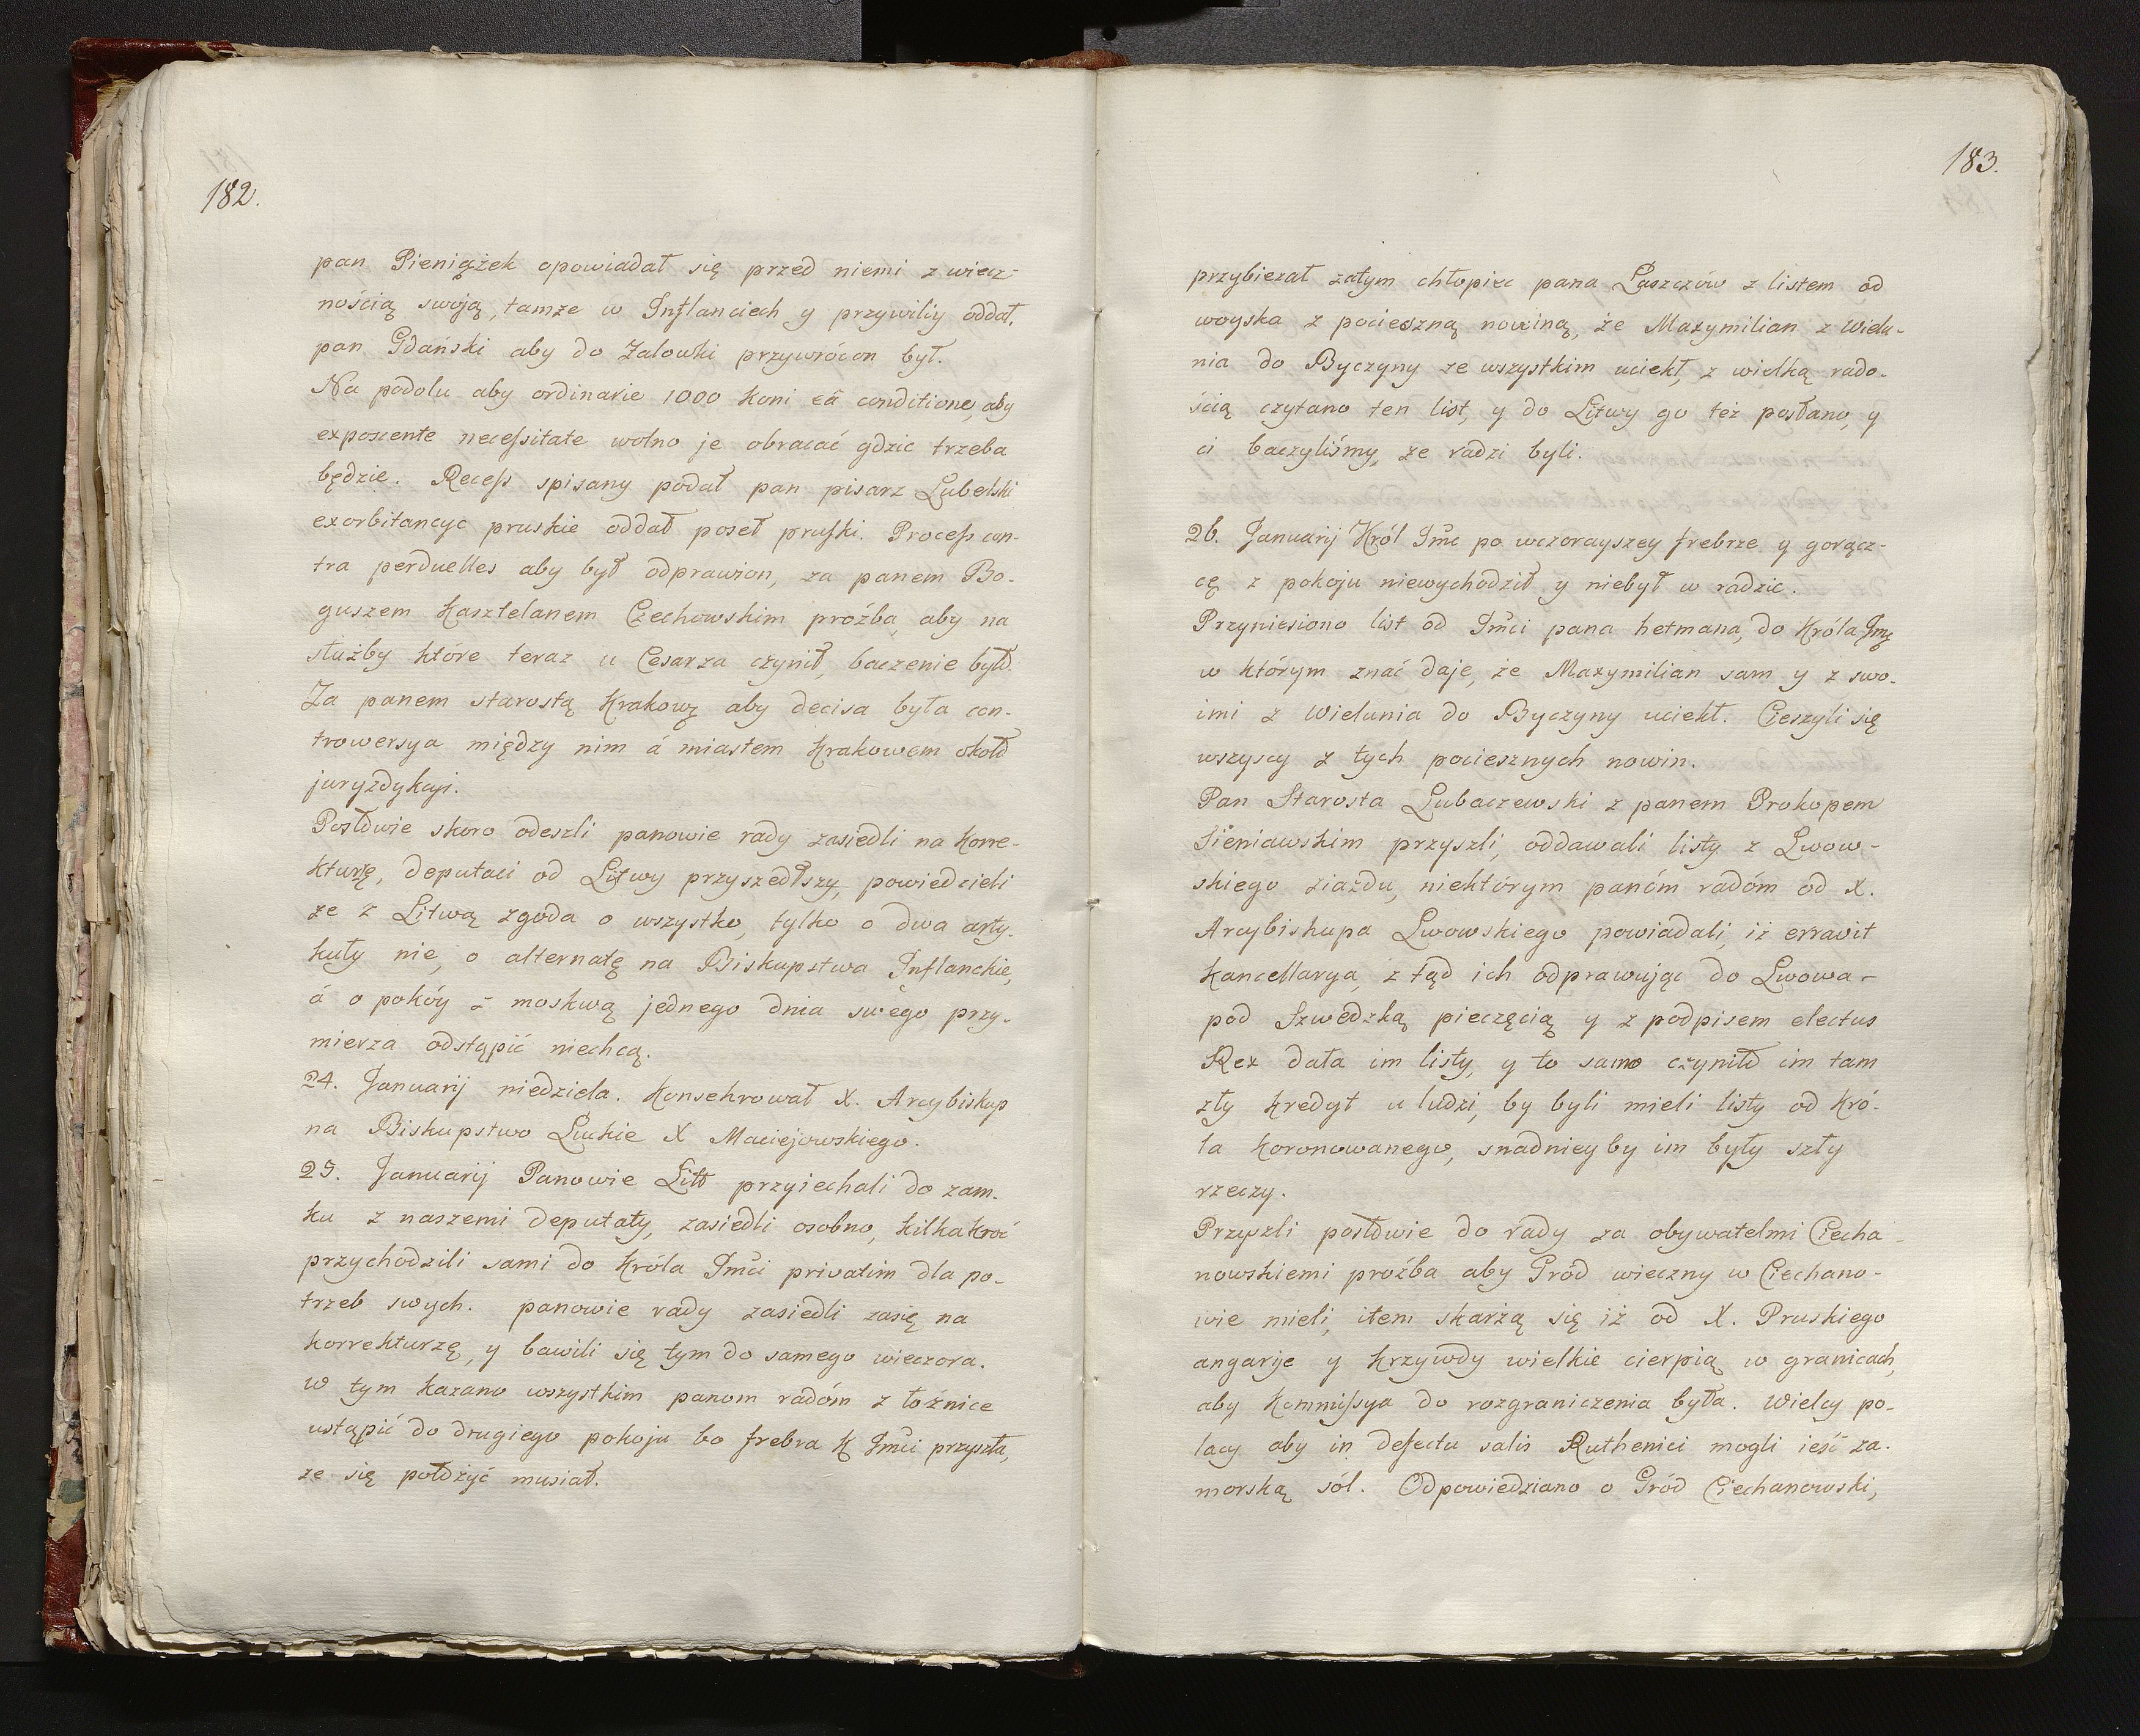 182.
pan Pieniążek opowiadał się przed niemi z wiecz-
nością swoją, tamże w Inflanciech y przywiliy oddał.
pan Gdański aby do Zalowki przywrócon był.
Na podolu aby ordinarie 1000 koni eâ conditione, aby
exposcente necessitate wolno je obracać gdzie trzeba
będzie. Recess spisany podał pan pisarz Lubelski
exorbitancye pruskie oddał poseł pruski. Process con-
tra perduelles aby był odprawion, za panem Bo-
guszem Kasztelanem Czechowskim proźba, aby na
służby które teraz u Cesarza czynił, baczenie było.
Za panem starostą Krakową aby decisa była con-
trowersya między nim á miastem Krakowem około
juryzdykcji.
Posłowie skoro odeszli panowie rady zasiedli na korre-
kturzę, deputaci od Litwy przyszedłszy, powiedzieli
że z Litwą zgoda o wszystko, tylko o dwa arty-
kuły nie, o alternatę na Biskupstwa Inflanckie,
á o pokóy z moskwą jednego dnia swego przy-
mierza odstąpić niechcą.
24. Januarij niedziela. Konsekrował X. Arcybiskup
na Biskupstwo Luckie X Maciejowskiego.
25. Januarij Panowie Litt przyiechali do zam-
ku z naszemi deputaty, zasiedli osobno, kilkakroć
przychodzili sami do Króla Jmci privatim dla po-
trzeb swych. panowie rady zasiedli zasię na
korrekturzę, y bawili się tym do samego wieczora.
w tym kazano wszystkim panom radóm z łożnice
ustąpić do drugiego pokoju bo frebra K Jmci przyszła,
że się położyć musiał.
183.
przybieżał zatym chłopiec pana Laszczów z listem od
woyska z pocieszną nowiną, że Maxymilian z Wielu-
nia do Byczyny ze wszystkim uciekł, z wielką rado-
ścią czytano ten list, y do Litwy go też posłano, y
ci baczyliśmy, że radzi byli.
26. Januarij Król Jmc po wczorayszey frebrze y gorącz-
cę z pokoju niewychodził y niebył w radzie.
Przyniesiono list od Jmci pana hetmana, do Króla Jmę
w którym znać daje, że Maxymilian sam y z swo-
imi z Wielunia do Byczyny uciekł. Cieszyli się
wszyscy z tych pociesznych nowin.
Pan Starosta Lubaczewski z panem Prokopem
Sieniawskim przyszli, oddawali listy z Lwow-
skiego ziazdu, niektórym panóm radóm od X.
Arcybiskupa Lwowskiego powiadali, iż erravit
kancellarya, z tąd ich odprawując do Lwowa -
pod Szwedzką pieczęcią y z podpisem electus
Rex dała im listy, y to samo czyniło im tam
zły kredyt u ludzi, by byli mieli listy od Kró-
la koronowanego, snadniey by im były szły
rzeczy.
Przyszli posłowie do rady za obywatelmi Ciecha-
nowskiemi proźba aby Gród wieczny w Ciechano-
wie mieli, item skarżą się iż od X. Pruskiego
angarije y krzywdy wielkie cierpią w granicach,
aby Kommissya do rozgraniczenia była. Wielcy po-
lacy aby in defectu salis Ruthenici mogli ieść za-
morską sól. Odpowiedziano o Gród Ciechanowski,